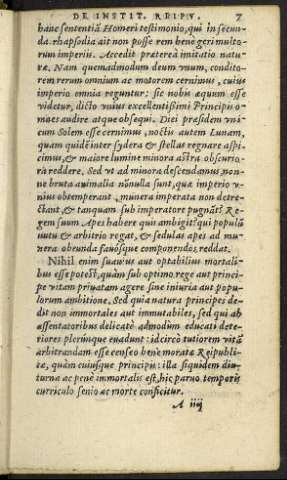 DE INSTIT. REIPV. 7
hanc sententiā Homeri testimonio, qui in secun-
da rhapsodia ait non posse rem bene geri multo-
rum imperii. Accedit præterea imitatio natu-
ræ. Nam quemadmodum deum vnum, condito-
rem rerum omnium ac motorem cernimus, cuius
imperio omnia reguntur: sic nobis æquum esse
videtur, dicto vnius excellentissimi Principis o-
mnes audire atque obsequi. Diei præsidem vni-
cum Solem esse cernimus, noctis autem Lunam,
quam quidē inter sydera & stellas regnare aspi-
cimus, & maiore lumine minora astra obscurio-
rà reddere. Sed vt ad minora descendamus, non-
ne bruta animalia nōnulla sunt, quæ imperio v-
nius obtemperant, munera imperata non detre-
ctant, & tanquam sub imperatore pugnāt? Re-
gem suum Apes habere quis ambigit? qui populū
nutu & arbitrio regat, & sedulas apes ad mu-
nera obeunda fauósque componendos reddat.
Nihil enim suauius aut optabilius mortali-
bus esse potest, quàm sub optimo rege aut princi-
pe vitam priuatam agere sine iniuria aut popu-
lorum ambitione. Sed quia natura principes de-
dit non immortales aut immutabiles, sed qui ab
assentatoribus delicatè admodum educati dete-
riores plerunque euadunt: idcircò tutiorem vitā
arbitrandam esse censeo benè moratæ Reipubli-
cæ, quàm cuiusque principis: illa siquidem diu-
turna ac penè immortalis est, hic paruo temporis
curriculo senio ac morte conficitur.
A iiij